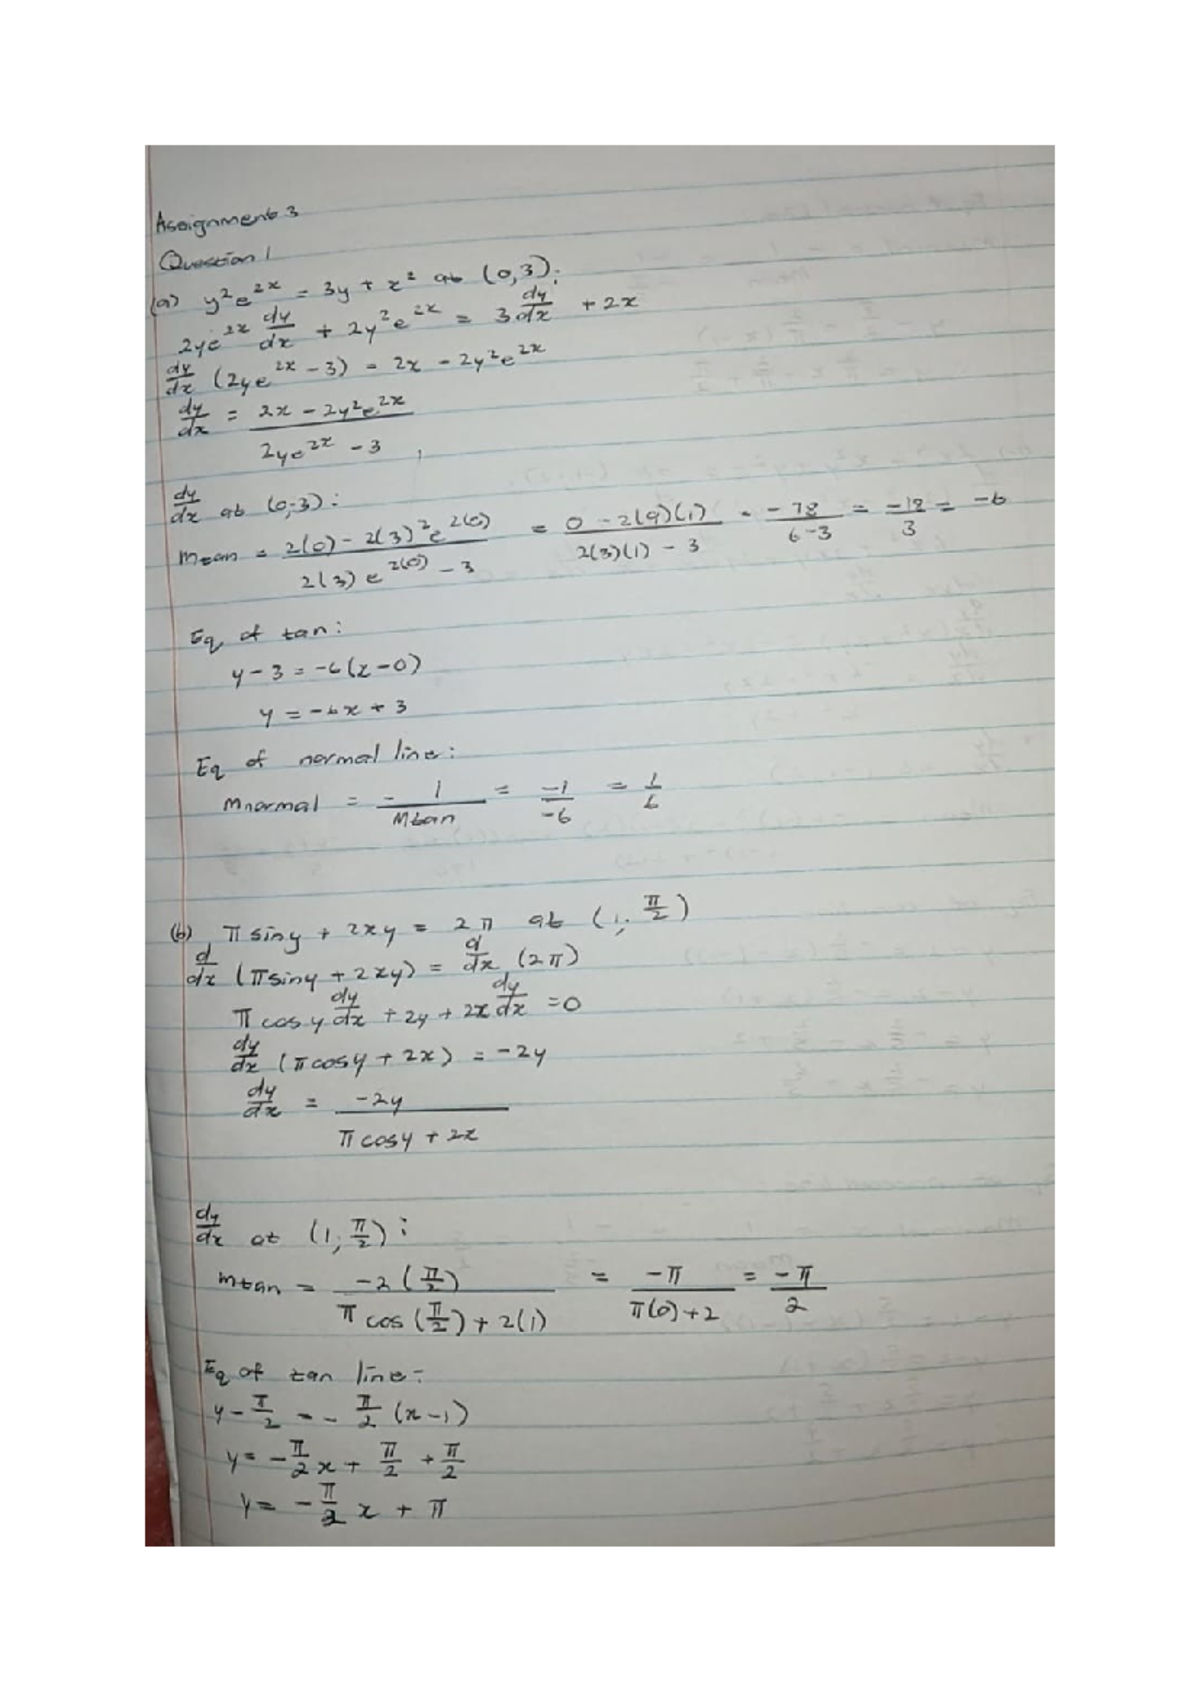 Assignment 3
Question 1
(a) y²e^{2x} = 3y + x² at (0,3).
2ye^{2x} dy/dx + 2y²e^{2x} = 3 dy/dx + 2x
dy/dx (2ye^{2x} - 3) = 2x - 2y²e^{2x}
dy/dx = (2x - 2y²e^{2x}) / (2ye^{2x} - 3)
dy/dx at (0;3):
mtan = (2(0) - 2(3)²e^{2(0)}) / (2(3)e^{2(0)} - 3) = (0 - 2(9)(1)) / (2(3)(1) - 3) = -18 / (6-3) = -18/3 = -6
Eq of tan:
y - 3 = -6(x - 0)
y = -6x + 3
Eq of normal line:
mnormal = - 1/mtan = -1/-6 = 1/6
(b) π siny + 2xy = 2π at (1; π/2)
d/dx (π siny + 2xy) = d/dx (2π)
π cosy dy/dx + 2y + 2x dy/dx = 0
dy/dx (π cosy + 2x) = -2y
dy/dx = -2y / (π cosy + 2x)
dy/dx at (1; π/2):
mtan = -2(π/2) / (π cos(π/2) + 2(1)) = -π / (π(0) + 2) = -π/2
Eq of tan line:
y - π/2 = - π/2 (x - 1)
y = - π/2 x + π/2 + π/2
y = - π/2 x + π